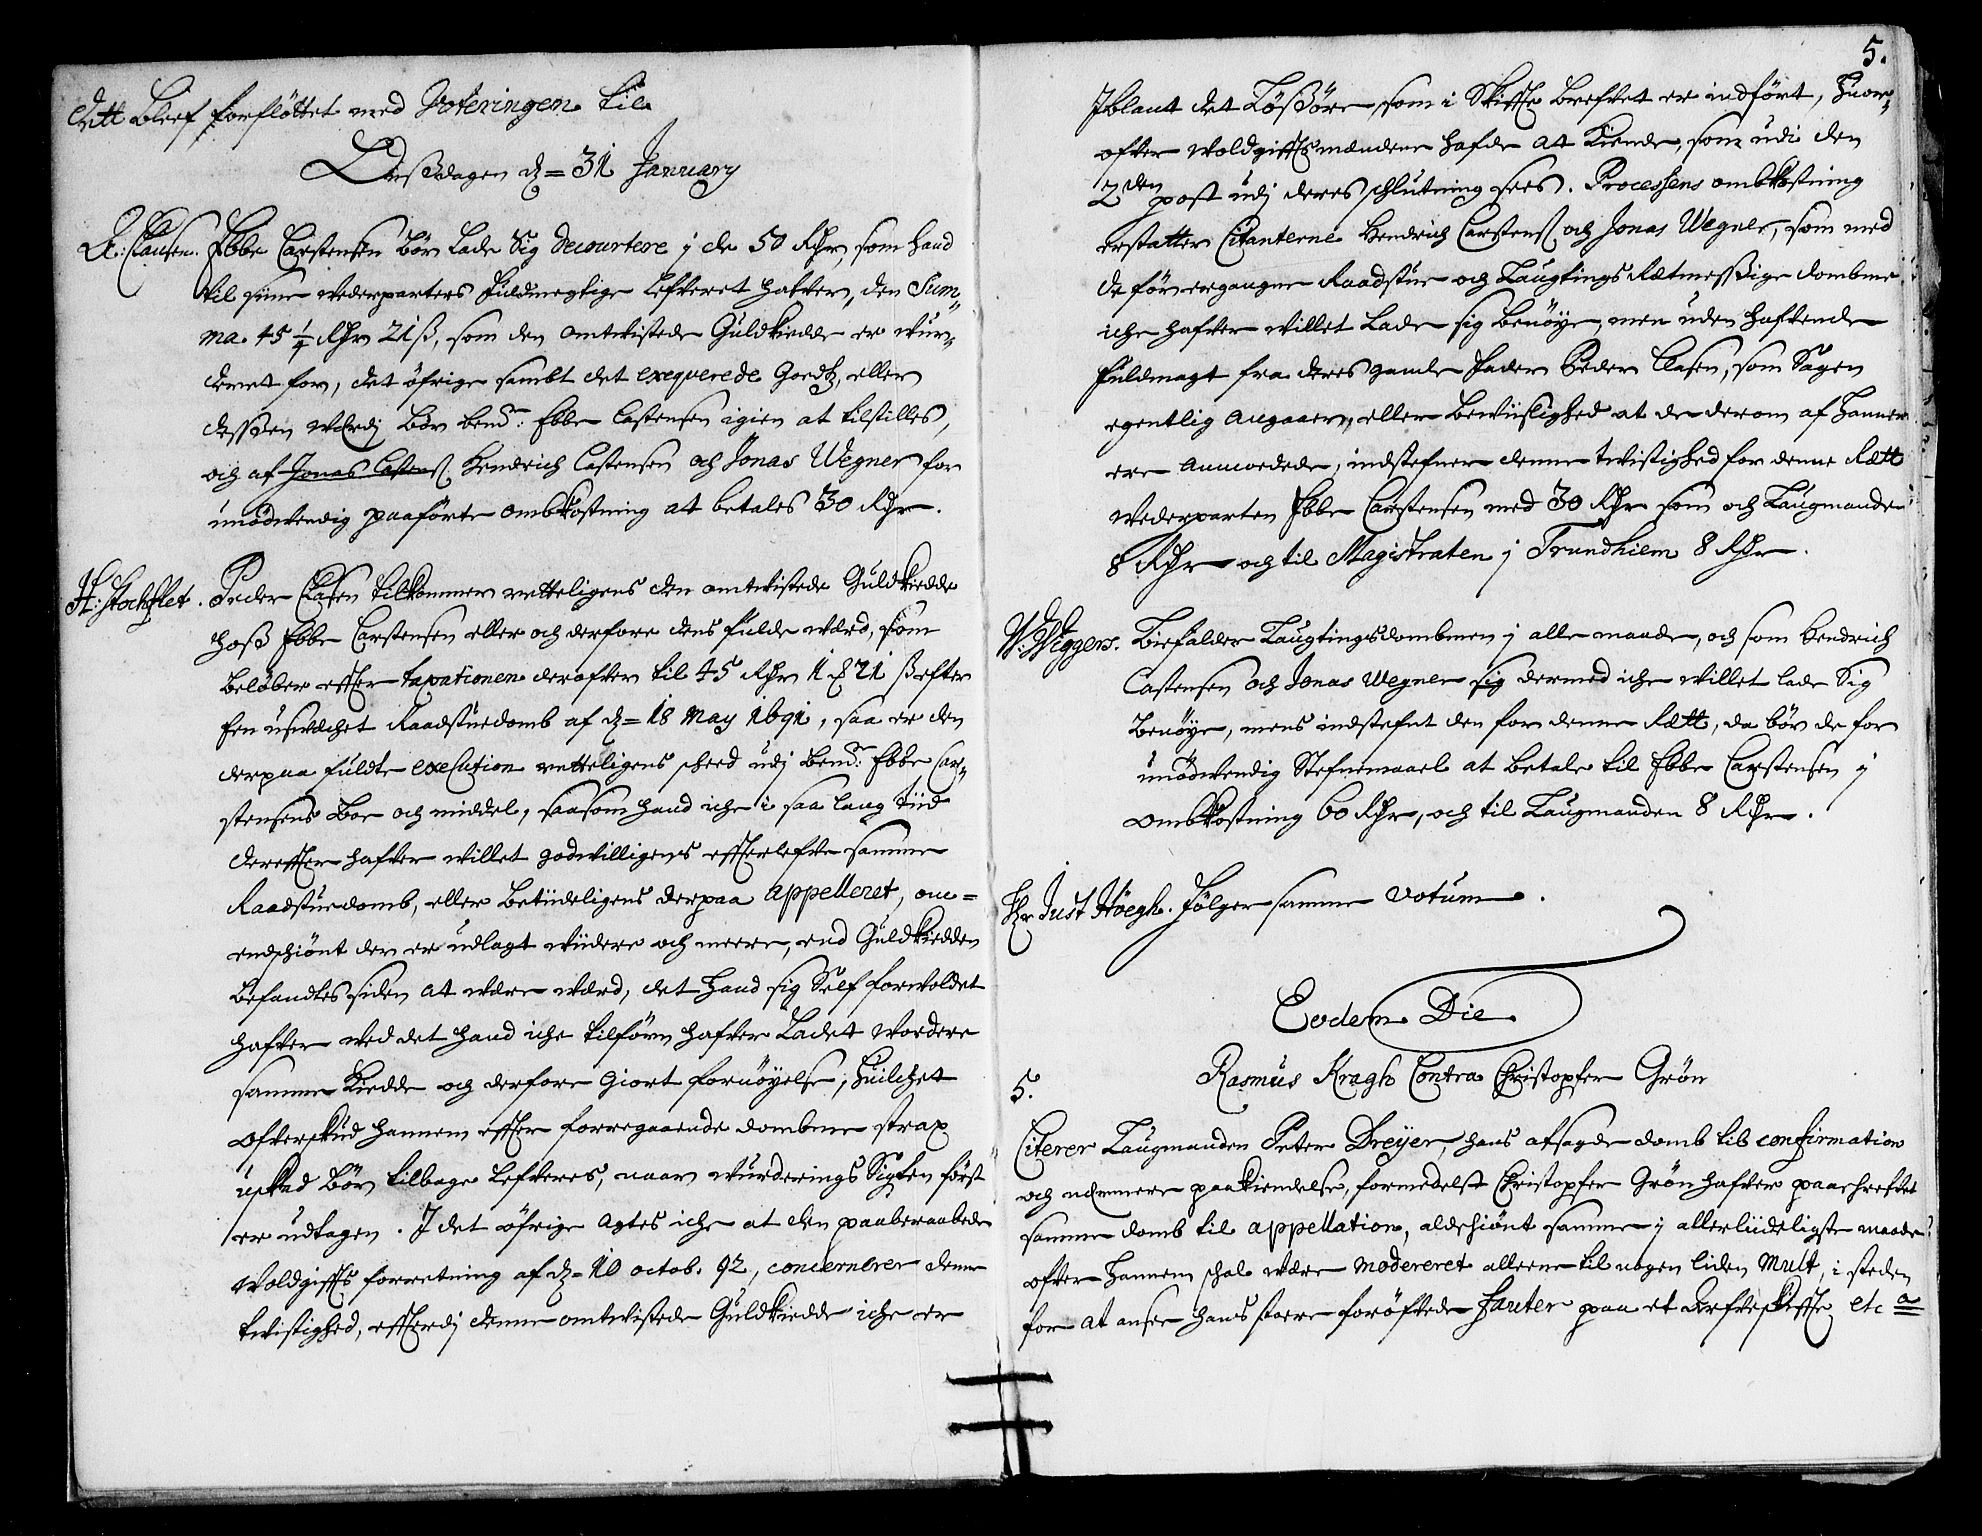 Dette bleef forfløttet med Voteringen til
Onssdagen d. 31 January
A: Clausen. Ebbe Carstensen bør lade Sig decourtere j de 50 Rdr, som hand
til sine wederparters fuldmegtige lefveret hafver, den Sum„
ma 45 1/4 Rdr 21 ß, som den omtvistede Guldkiedde er wur„
deret for, det øfrige sambt det exeqverede Goedtz, eller
dessen Werdj bør bemt: Ebbe Castensen igien at tilstilles,
och af Jonas Castenß. Hendrich Castensen och Jonas Wegner for
unødwendig paaførte ombkostning at betales 30 Rdr.
H: Stockflet. Peder Clasen tilkommer retteligens den omtvistede Guldkiedde
hoß Ebbe Carstensen eller och derfore dens fulde werd, som
beløber efter taxationen derofver til 45 Rdr 1 ꝣ 21 ß efter
en usvechet Raadstuedomb af d. 18 May 1691, saa er den
derpaa fuldte execution retteligens scheed udj bemt: Ebbe Car„
stensens Boe och middel, saasom hand iche i saa lang tiid
derefter hafver willet godwilligens efterlefve samme
Raadstuedomb, eller betiideligens derpaa appelleret, om=
endschiønt der er udlagt wiidere och meere, end Guldkiedden
befandtes siden at være wærd, det hand sig Self forvoldet
hafver wed det hand iche tilforn hafver ladet Vordere
samme Kiedde och derfore giort fornøyelse, huilchet
ofverskud hannem efter forregaaende dombme strax
uskad bør tilbage lefveres, naar wurderings Sigten først
er udtagen. I det øfrige agtes iche at den paaberaabede
Voldgifts forretning af d. 10 octob. 92, concernerer denne
twistighed, efterdj denne omtvistede Guldkiedde iche er
5.
Iblant det Løßøre, som i Skifte brefvet er indført, huor„
ofver Voldgiftsmændene hafde at Kiende, som udi den
2den post udj deres schlutning sees. Processens ombkostning
erstatter Citanterne Hendrich Carstenß och Jonas Wegner, som med
de før ergangne Raadstue och Laugtings Retmessige dombme
iche hafver willet lade sig benøye, men uden hafvende
fuldmagt fra deres gamle fader Peder Clasen, som Sagen
egentlig angaaer, eller bewiislighed at de derom af hannem
ere anmodede, indstefner denne twistighed for denne Rætt
wederparten Ebbe Carstensen med 30 Rdr som och Laugmanden
8 Rdr och til Magistraten j Trundhiem 8 Rdr.
W: Wiggers. Biefalder Laugtingsdombmen j alle maade, och som Hendrich
Castensen och Jonas Wegner sig dermed iche willet lade Sig
benøye, mens indstefnt den for denne Rætt, da bør de for
unødwendig Stefnemaael at betale til Ebbe Carstensen j
ombkostning 60 Rdr, och til Laugmanden 8 Rdr.
Hr Just Høegh. følger samme votum.
Eodem Die
5.
Rasmus Kragh Contra Christopfer Grøn
Citerer Laugmanden Peter Dreyer, hans afsagde domb til confirmation
och nermere paakiendelse, formedelst Christopfer Grøn hafver paaschrefvet
samme domb til appellation, aldschiønt samme j allerliideligste maade
ofver hannem schal være modereret alleene til nogen liden Mult, i steden
for at ansee hans store forøfvede fauter paa et Arfveskifte etc a